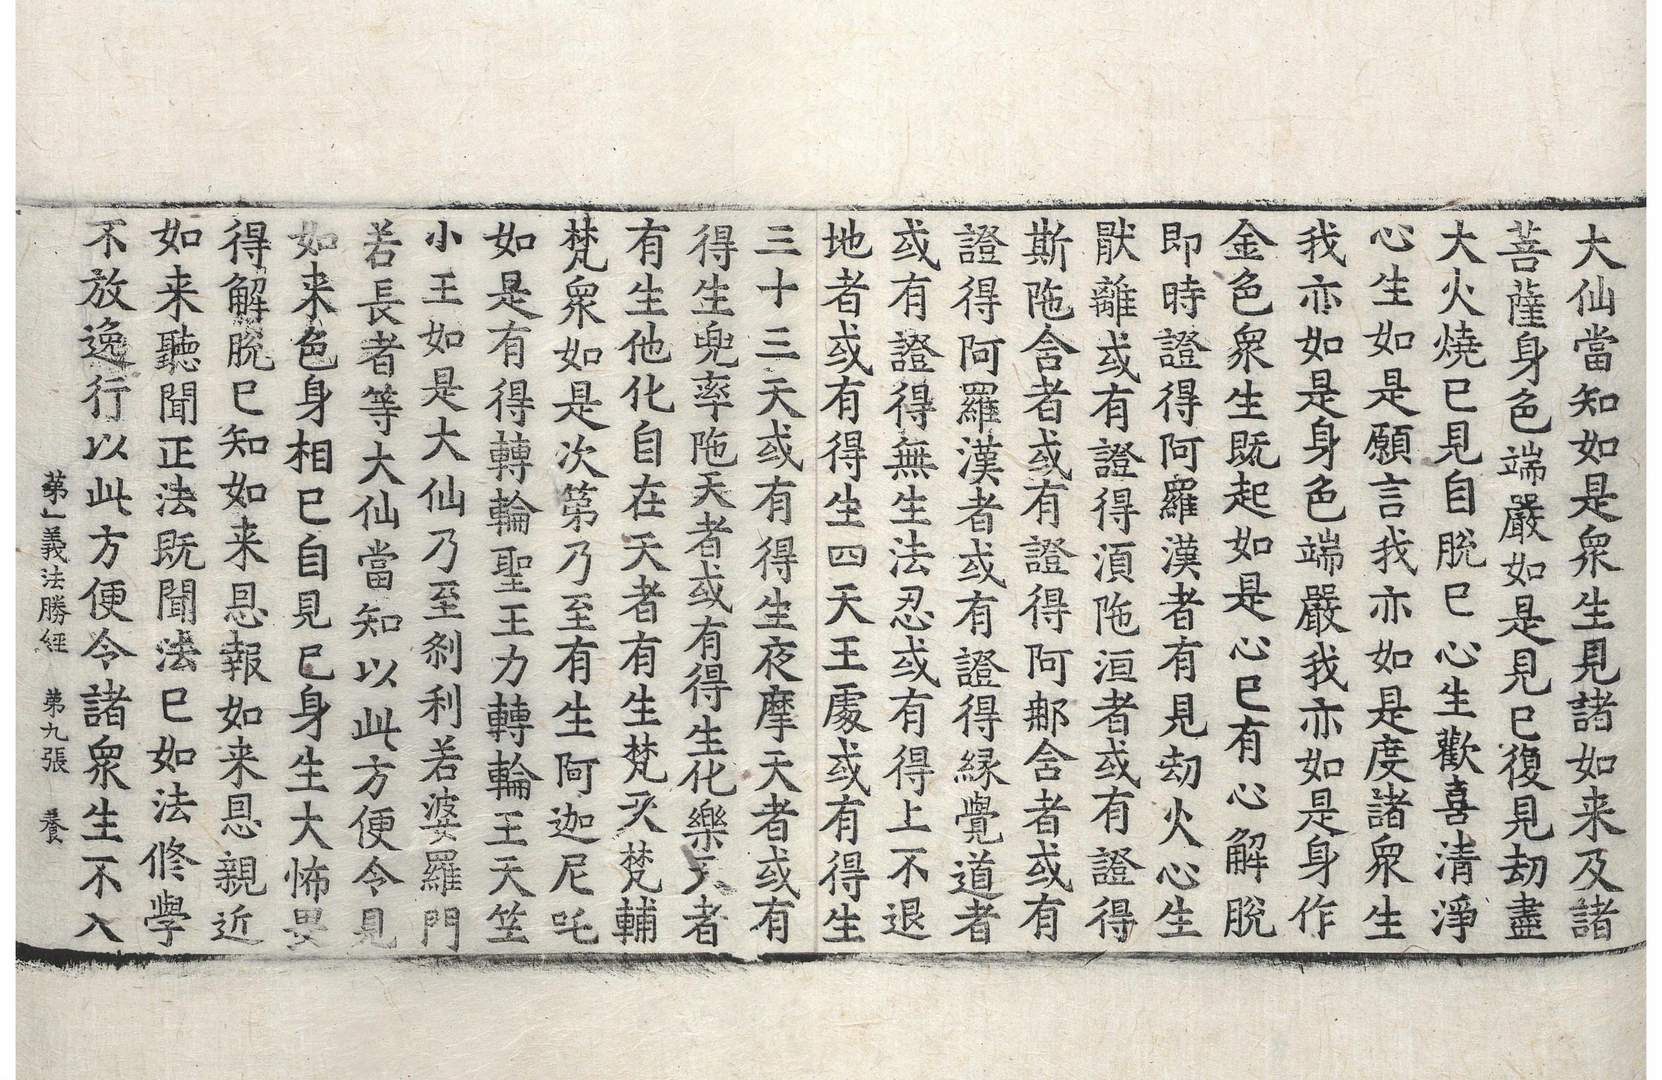 大仙當知如是衆生見諸如来及諸
菩薩身色端嚴如是見已復見劫盡
大火燒已見自脫已心生歡喜清淨
心生如是願言我亦如是度諸衆生
我亦如是身色端嚴我亦如是身作
金色衆生既起如是心已有心解脫
即時證得阿羅漢者有見劫火心生
猒離或有證得湏陁洹者或有證得
斯陁含者或有證得阿那含者或有
證得阿羅漢者或有證得縁覺道者
或有證得無生法忍或有得上不退
地者或有得生四天王處或有得生
三十三天或有得生夜摩天者或有
得生兜率陁天者或有得生化樂天者
有生他化自在天者有生梵天梵輔
梵衆如是次第乃至有生阿迦尼吒
如是有得轉輪聖王力轉輪王天坐
小王如是大仙乃至刹利若婆羅門
若長者等大仙當知以此方便令見
如来色身相已自見已身生大怖畏
得解脫已知如来恩報如来恩親近
如来聽聞正法既聞法已如法修學
不放逸行以此方便令諸衆生不入
第一義法勝經 第九張 養